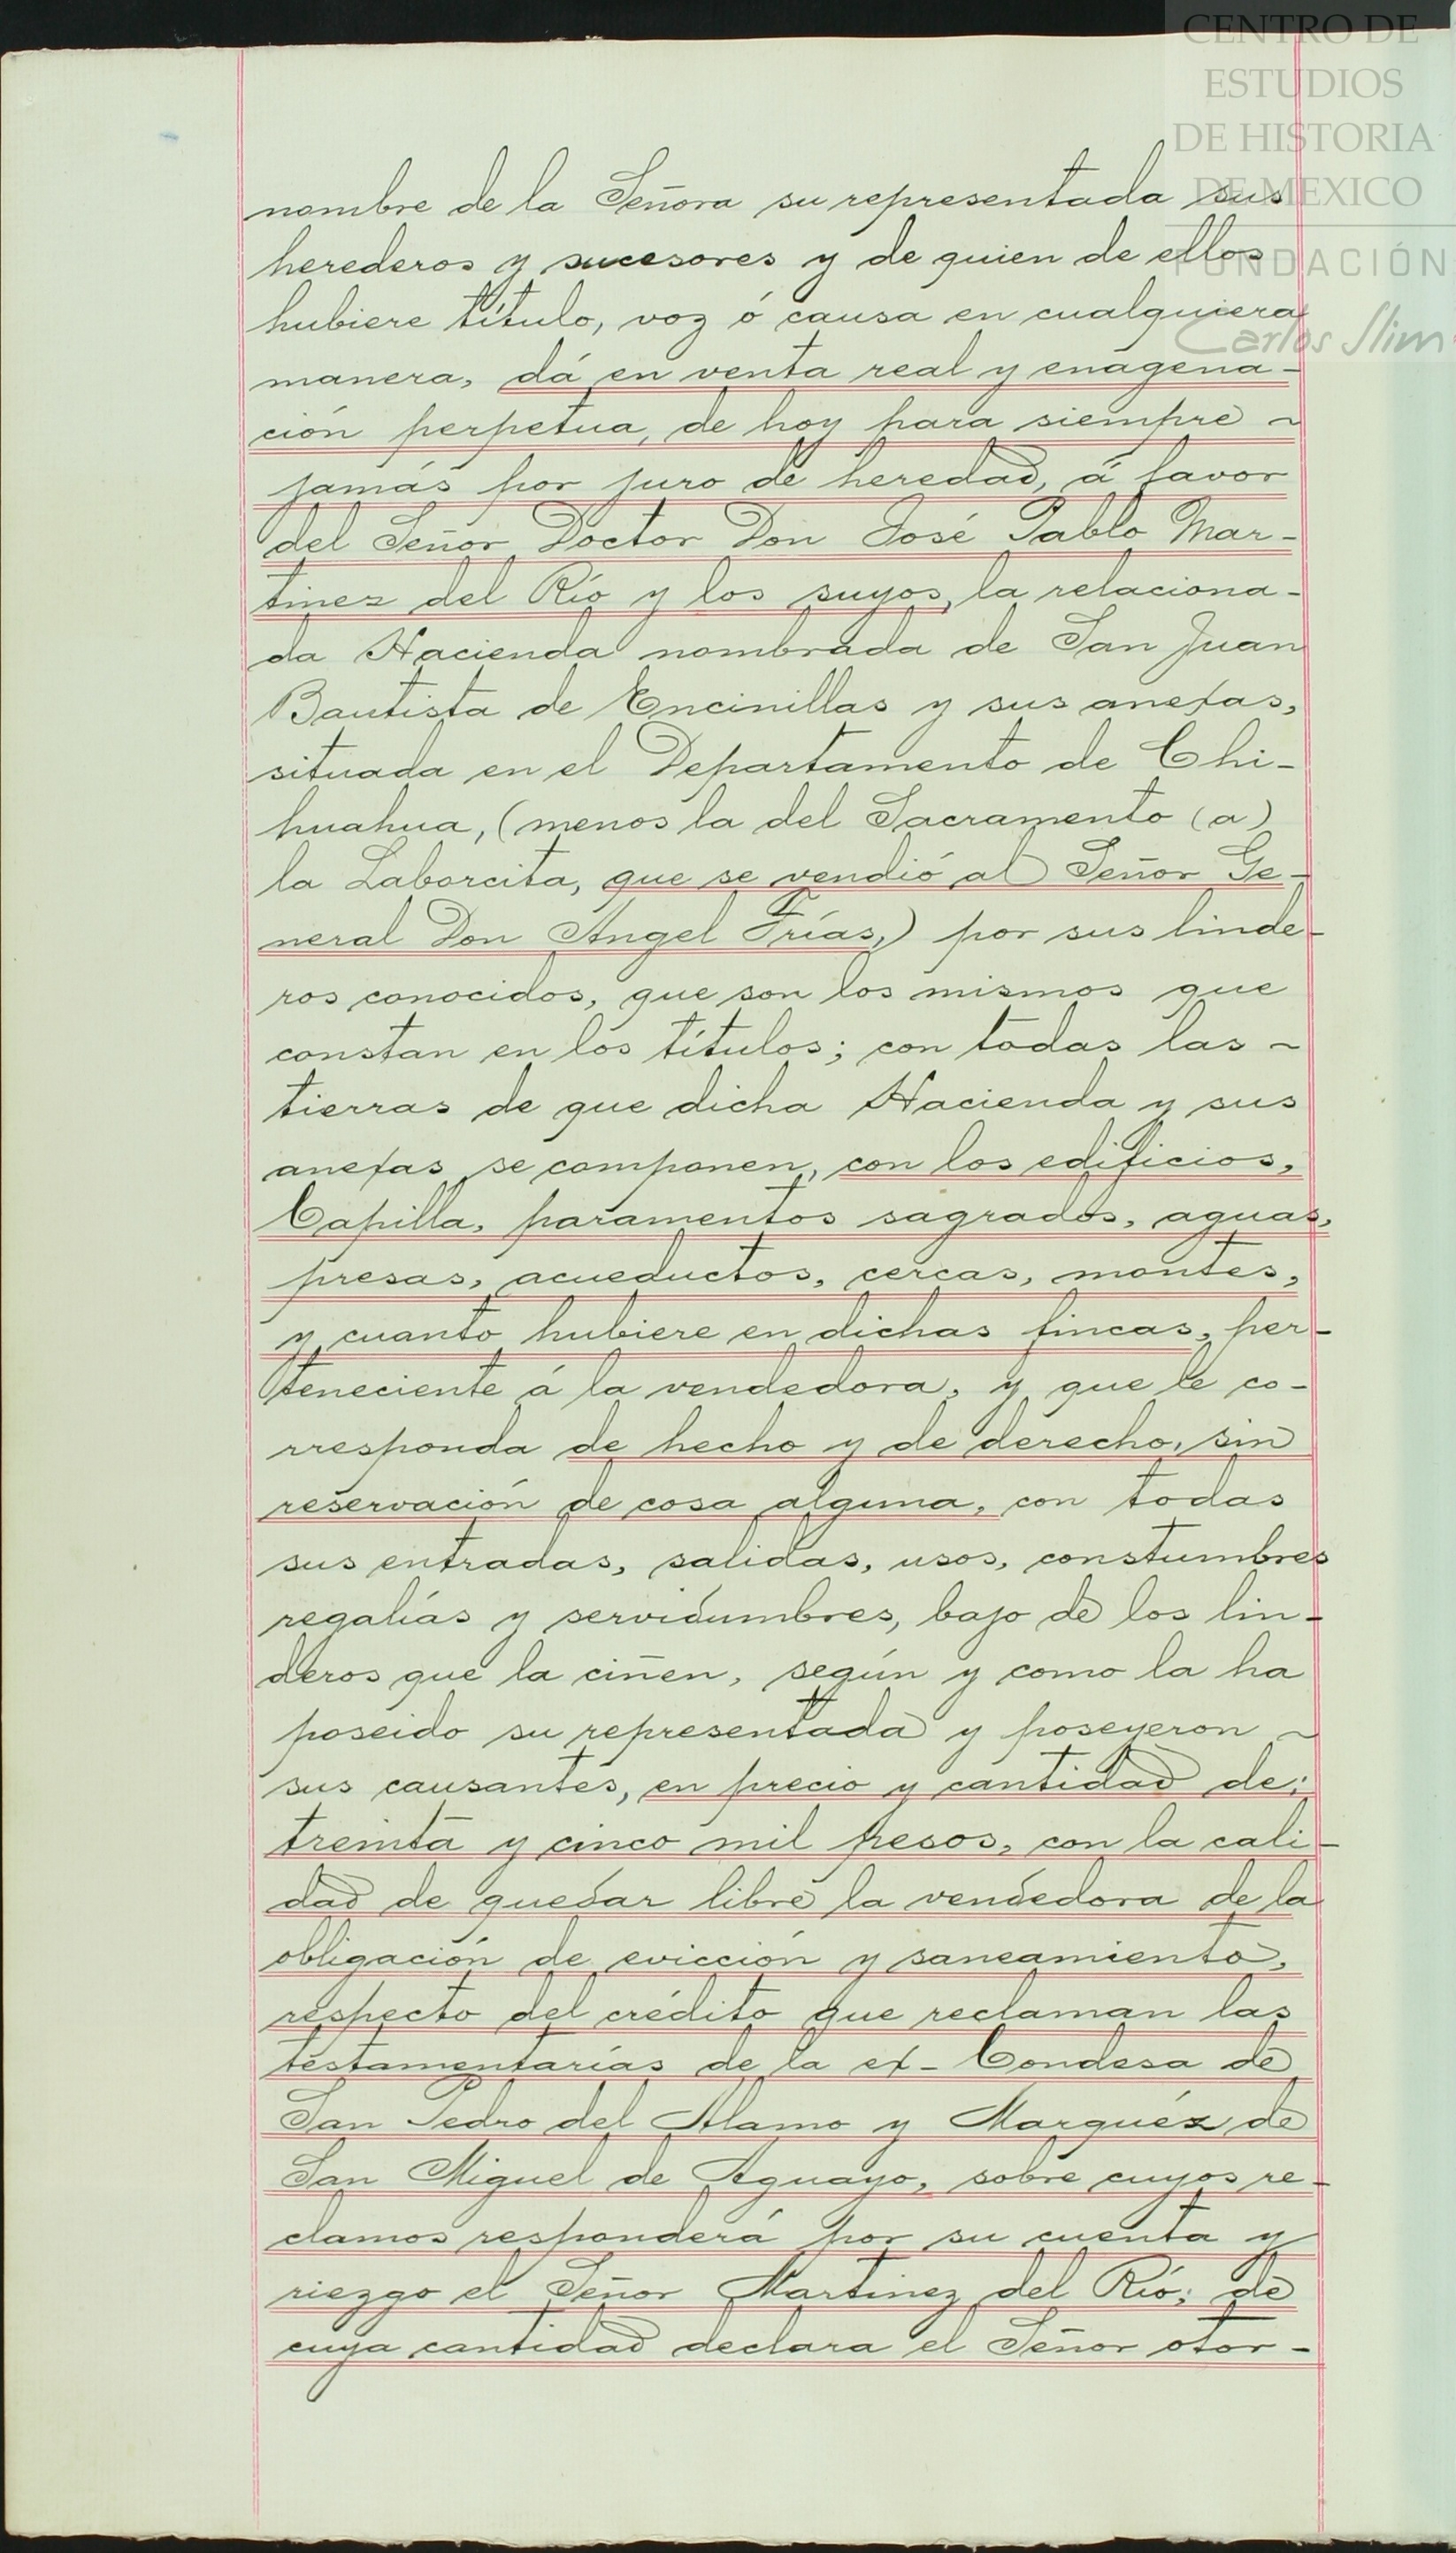 CENTRO DE
ESTUDIOS
DE HISTORIA
DE MEXICO
FUNDACIÓN
Carlos Slim
nombre de la Señora su representada sus
herederos y sucesores y de quien de ellos
hubiere título, voz ó causa en cualquiera
manera, dá en venta real y enagena-
ción perpetua, de hoy para siempre ~
jamás por juro de heredad, á favor
del Señor Doctor Don José Pablo Mar-
tinez del Río y los suyos, la relaciona-
da Hacienda nombrada de San Juan
Bautista de Encinillas y sus anexas,
situada en el Departamento de Chi-
huahua, (menos la del Sacramento (a)
la Laborcita, que se vendió al Señor Ge-
neral Don Angel Frías,) por sus linde-
ros conocidos, que son los mismos que
constan en los títulos; con todas las ~
tierras de que dicha Hacienda y sus
anexas se componen, con los edificios,
Capilla, paramentos sagrados, aguas,
presas, acueductos, cercas, montes,
y cuanto hubiere en dichas fincas, per-
teneciente á la vendedora, y que le co-
rresponda de hecho y de derecho, sin
reservación de cosa alguna, con todas
sus entradas, salidas, usos, constumbres
regalías y servidumbres, bajo de los lin-
deros que la ciñen, según y como la ha
poseido su representada y poseyeron ~
sus causantes, en precio y cantidad de;
treinta y cinco mil pesos, con la cali-
dad de quedar libre la vendedora de la
obligación de evicción y saneamiento,
respecto del crédito que reclaman las
testamentarías de la ex-Condesa de
San Pedro del Alamo y Marquéz de
San Miguel de Aguayo, sobre cuyos re-
clamos responderá por su cuenta y
riezgo el Señor Martinez del Río; de
cuya cantidad declara el Señor otor-